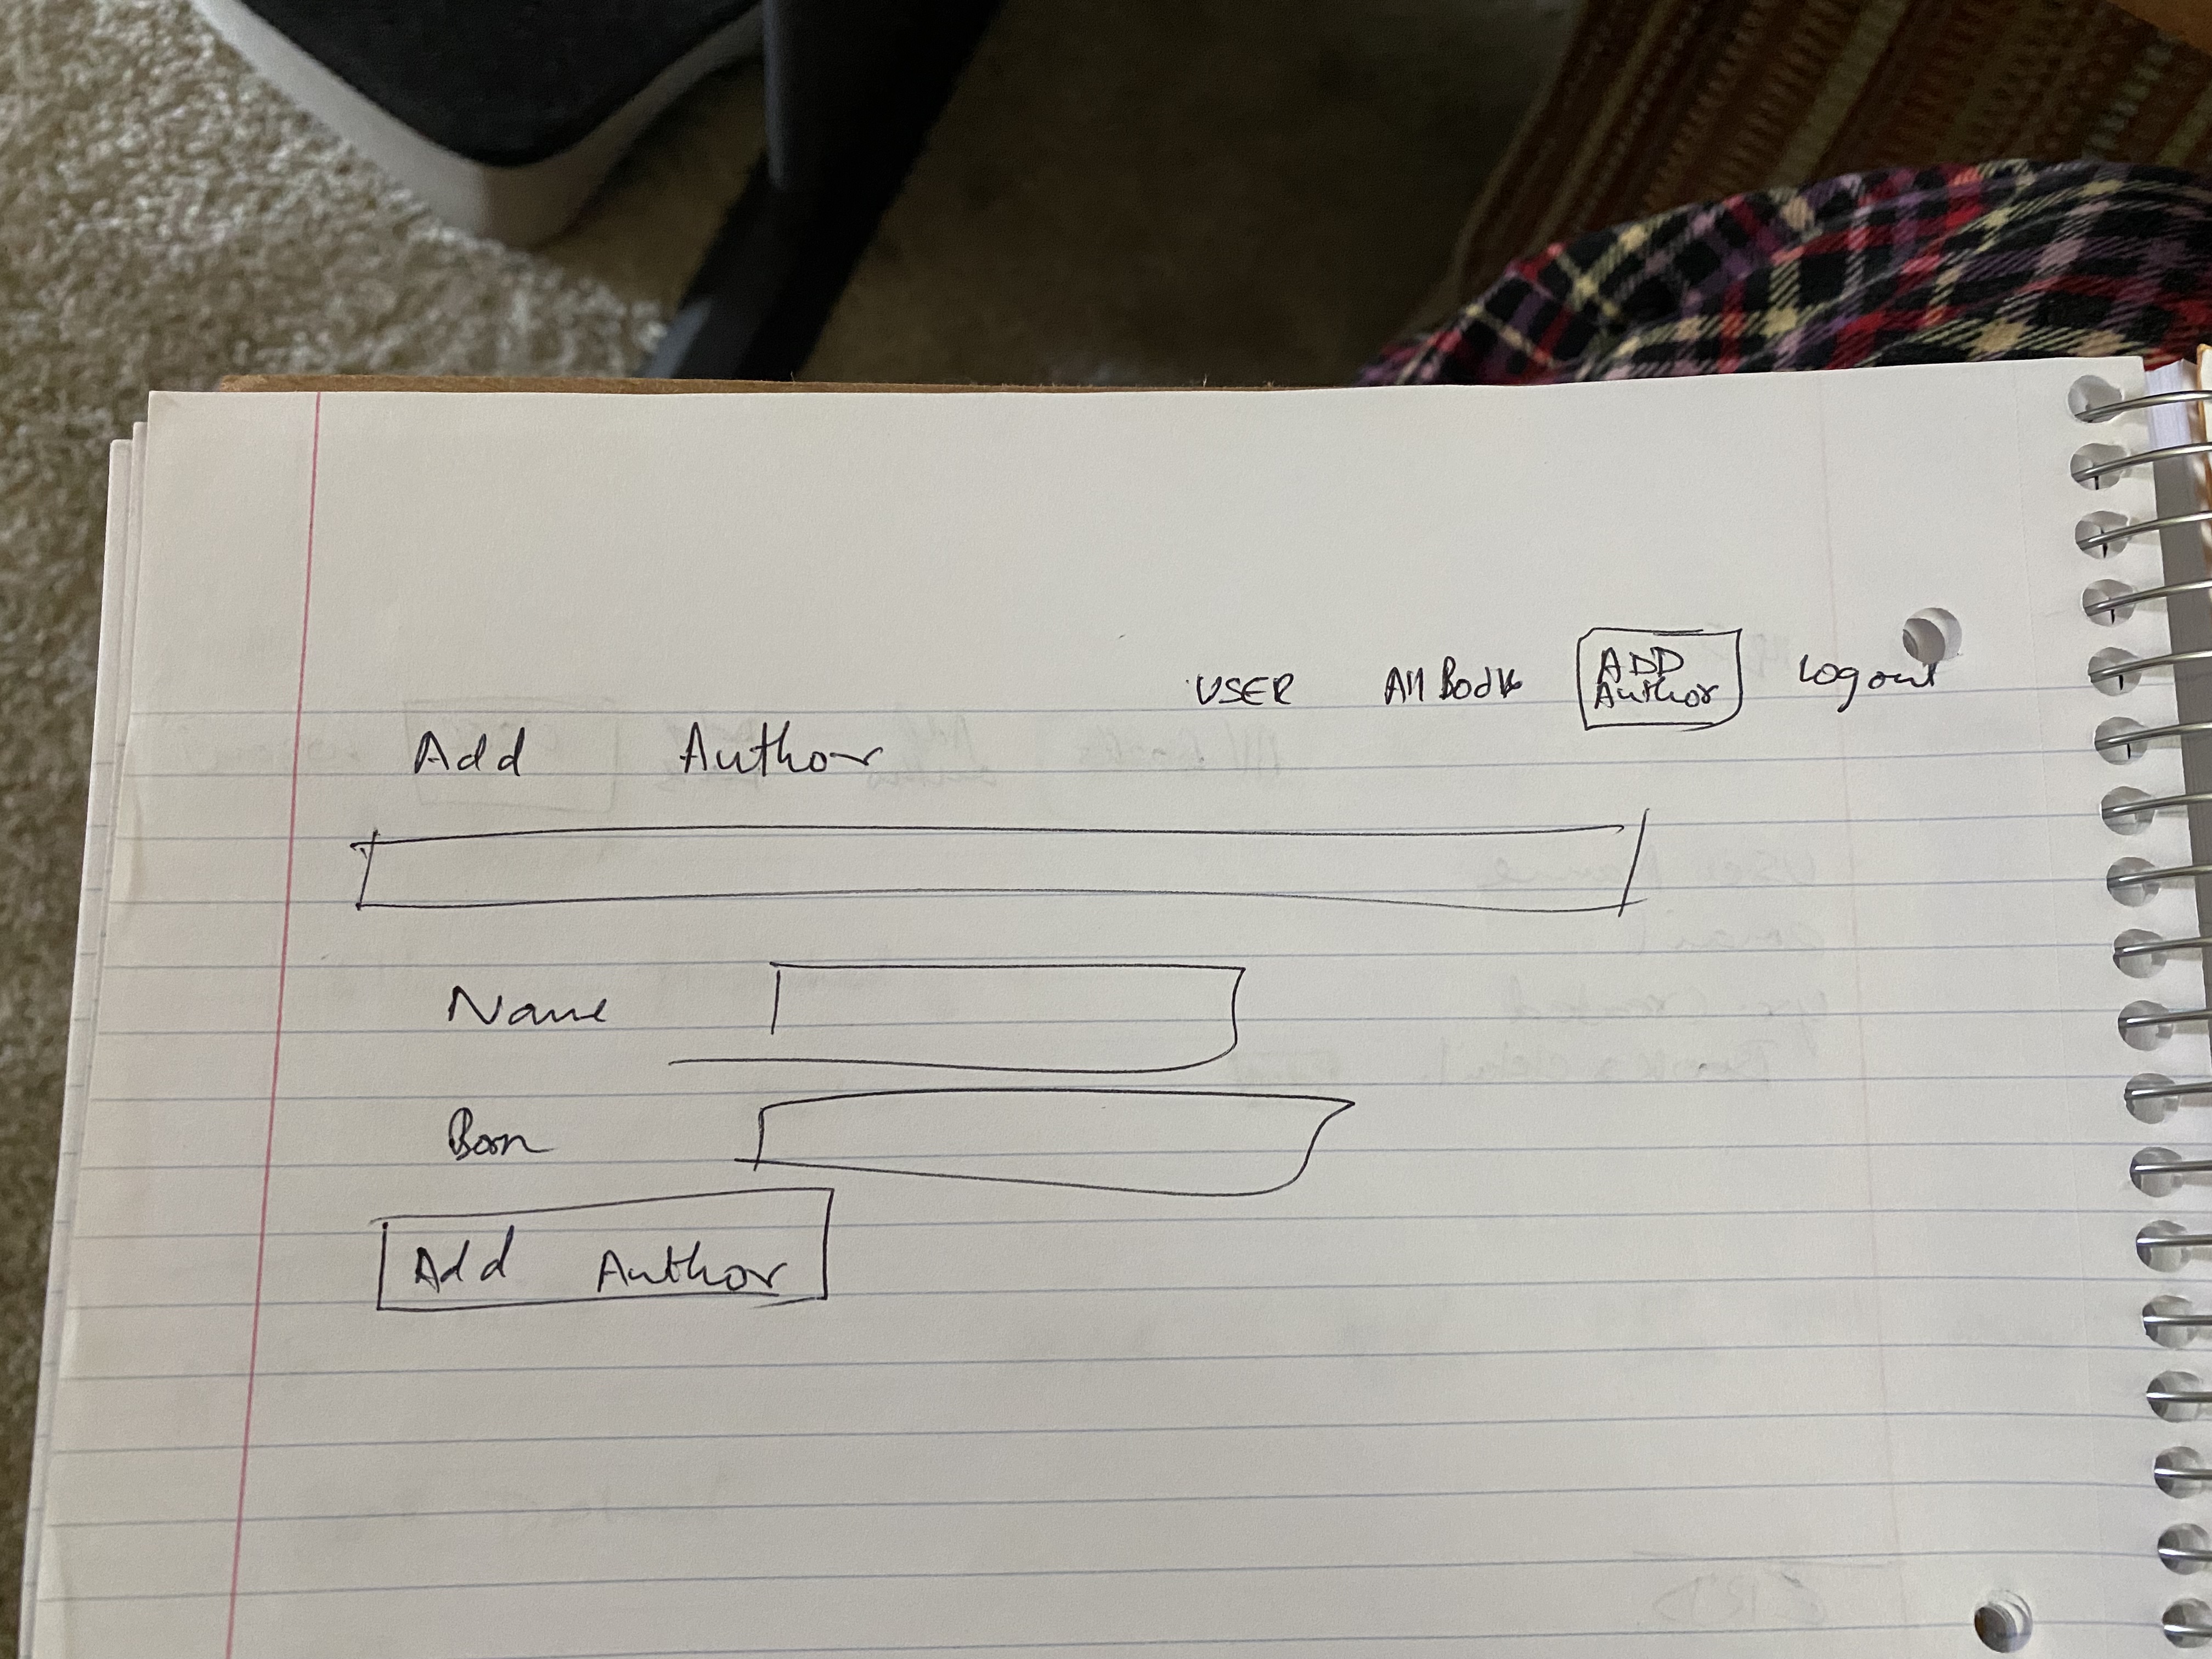 USER All Books ADD Author Logout
Add Author
Name
Born
Add Author